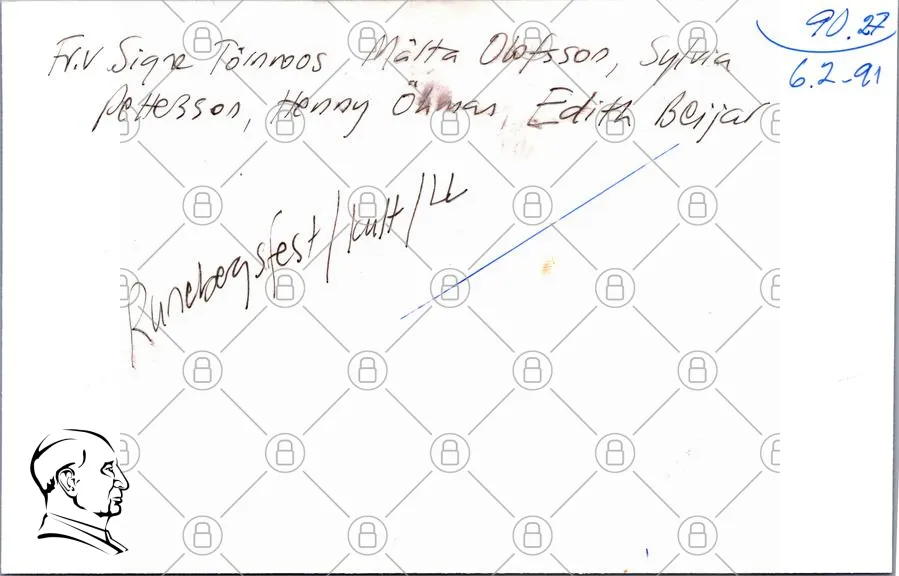 90.27
6.2-91
Fr.v Signe Törnroos, Målta Olofsson, Sylvia
Pettersson, Henny Öhman, Edith Beijar
Runebergsfest/kult/LL